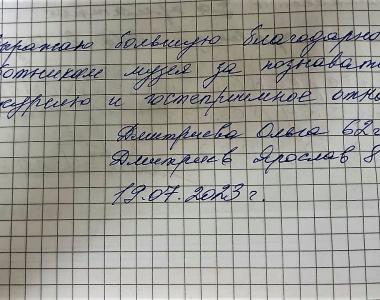 ыражаю большую благодарно
отникам музея за познават
курсию и гостеприимное отно
Дмитриева Ольга 62 г
Дмитриев Ярослав 8
19.07.2023 г.